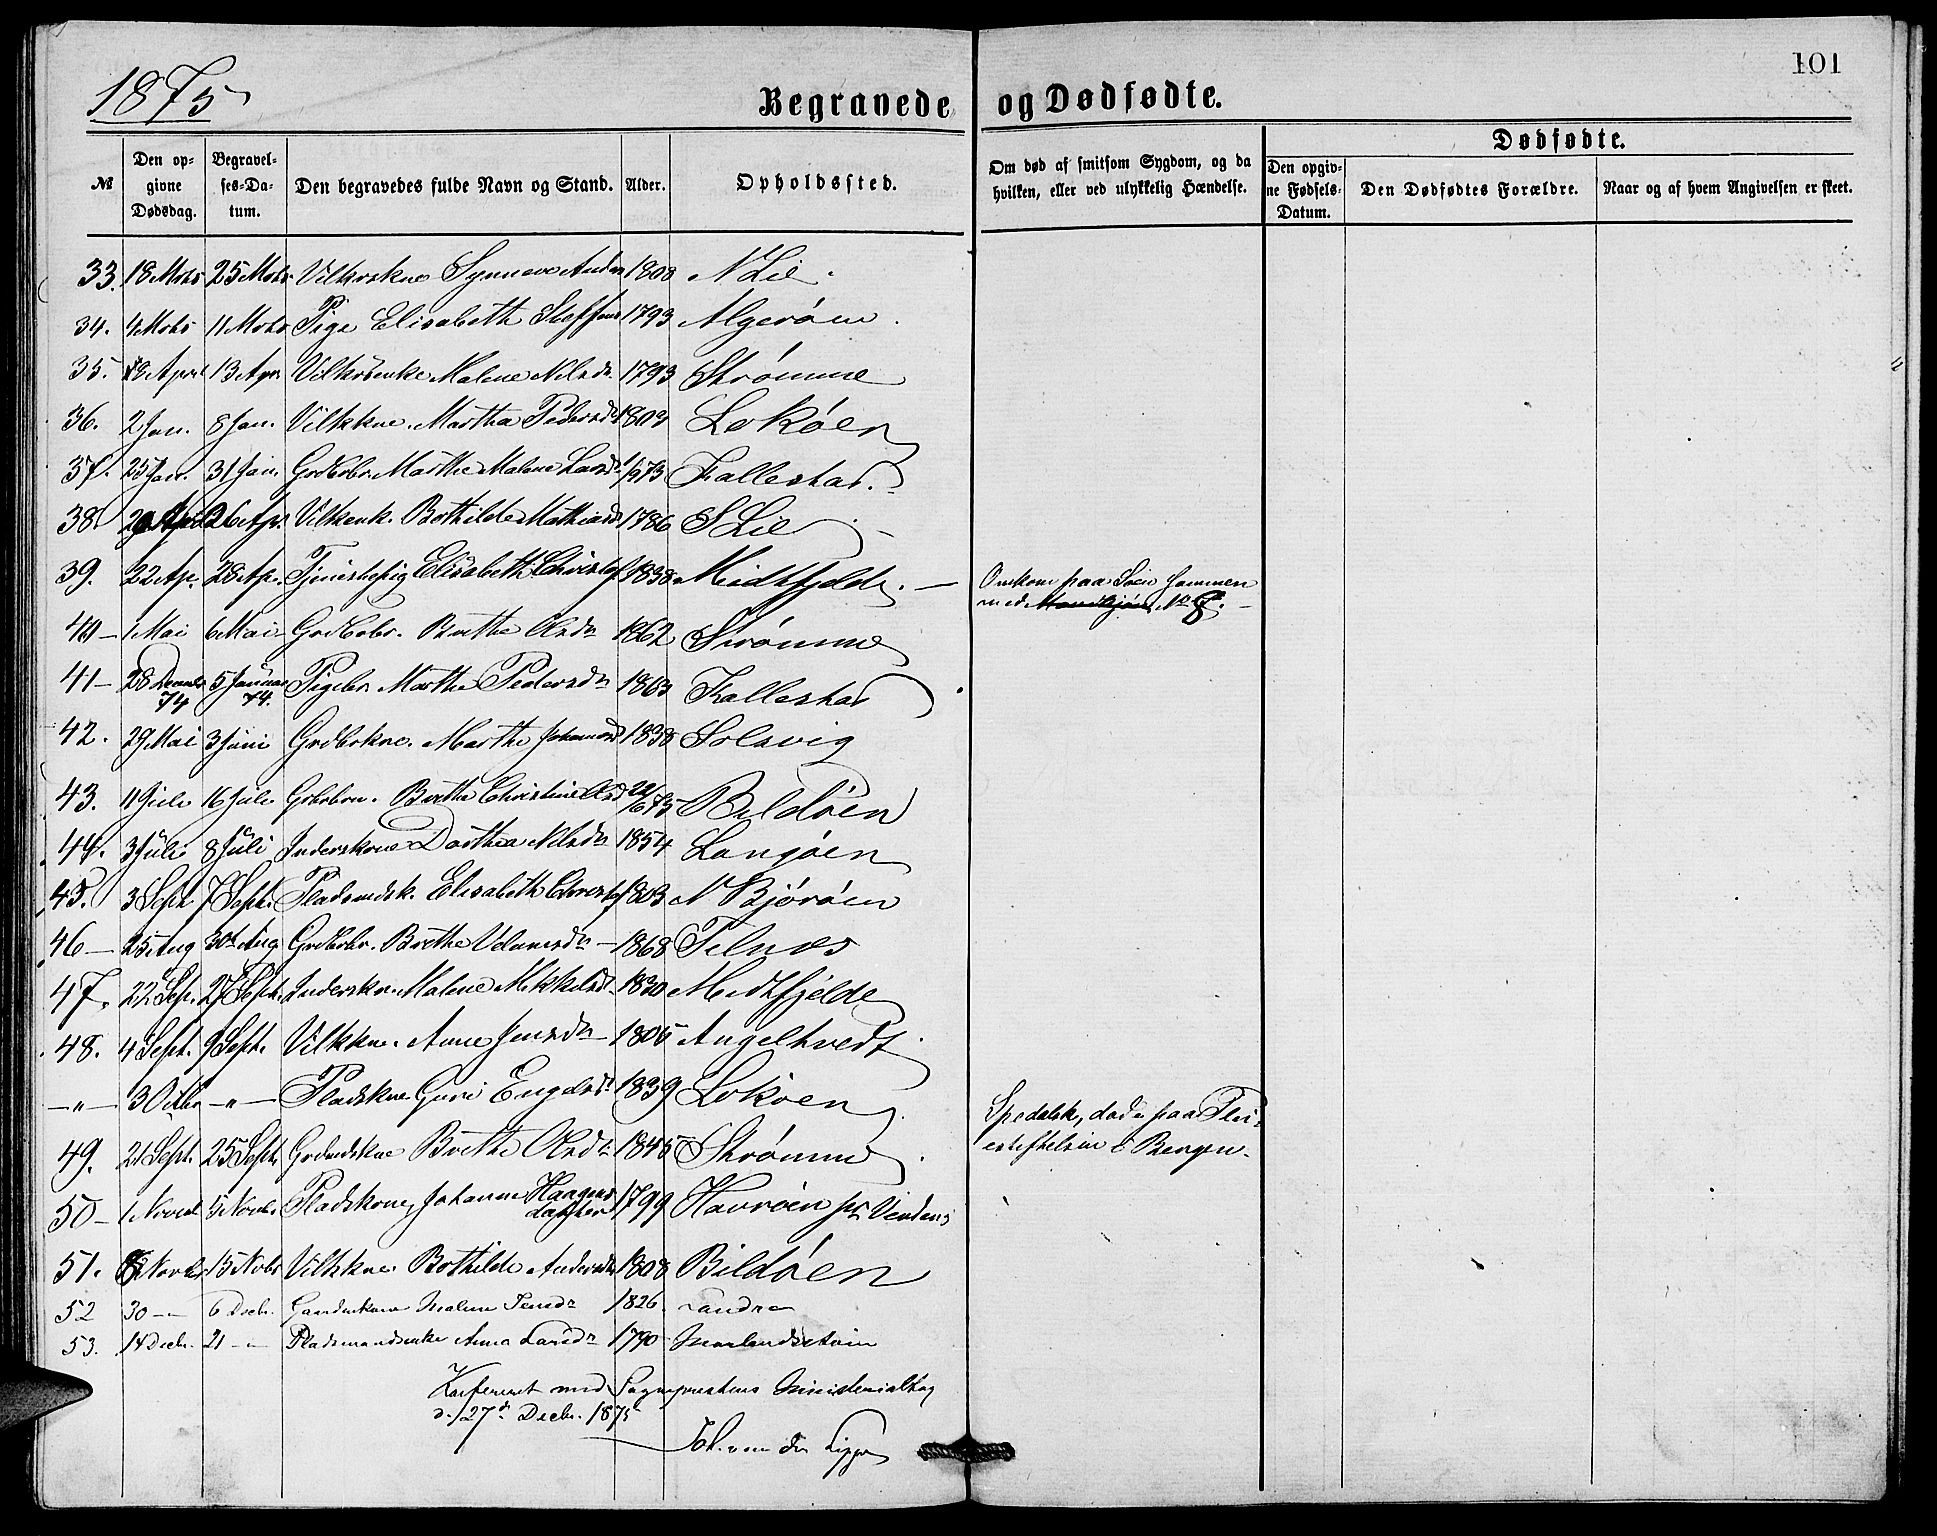 1875
101
Begravede og Dødfødte.
№
Den opgivne Dødsdag.
Begravelses-Datum.
Den begravedes fulde Navn og Stand.
Alder.
Opholdssted.
Om død af smitsom Sygdom, og da hvilken, eller ved ulykkelig Hændelse.
Dødfødte.
Den opgivne Fødsels-Datum.
Den Dødfødtes Forældre.
Naar og af hvem Angivelsen er skeet.
33. 18 Mrts 25 Mrts Vilkrskne Synneve Anders 1808 N Lie.
34. 4 Mrts 11 Mrts Pige Elisabeth Steffens 1793 Algerøen.
35. 8 April 13 Apr Vilkrsenke Malene Nilsdr. 1793 Strømme
36. 2 Jan. 8 Jan. Vilkkne. Martha Pedersdr 1809 Lokøen
37. 25 Jan. 31 Jan. Grdbrbr. Marthe Malene Larsdr 1/173 Fallestad.
38. 20 Apr 26 Apr. Vilkenk. Bothilde Mathiasd 1786 S Lie
39. 22 Ap. 28 Ap. Tjenestepig Elisabeth Christof 1838 Midtfjelde. — Omkom paa Søen sammen
med № 8. —
40 — 1 Mai 6 Mai Grdbrbr. Berthe Olsdr 1862 Strømme
41 — 28 Decembr 74 5 Januar 74. Pigebr Marthe Pedersdr 1863 Fallestad
42. 29 Mai 3 Juni Grdbrkne. Marthe Johannesd 1838 Solsvig
43. 11 Juli 16 Juli Grbrbrn. Berthe Christine Olsd 22/6 75 Bildøen
44. 3 Juli 8 Juli Inderskone Dorthea Nilsdr 1854 Langøen
45. 3 Sept 7 Sept. Pladsmdsk. Elisabeth Christof 1803 N Bjørøen
46 — 25 Aug 30te Aug Grdbrbr. Berthe — 1868 Telnes
47. 22 Sep. 27 Sept. Inderskne Malene Mikkelsdr 1830 Midtfjelde
48. 4 Sept. 9 Sept. Vilkkne. Anne Jensdr — 1805 Angeltvedt
—"— 3 Octbr —"— Pladskne Guri Engelsdr 1839 Lokøen. Spedalsk, død paa Plei-
estiftelsen i Bergen.
49. 21 Sept. 25 Sept. Grdmdskne Berthe Olsdr 1845 Strømme.
50 — 1 Novembr 5 Novbr. Pladskone, Johanne Haagens datter 1799 Havrøen
51. 8 Novbr. 15 Nobr Vilkkne Bothilde Andersdr 1808 Bildøen
52 30 — 6 Decbr. Gaardmskone Malene Jensdr 1826. Tandre
53. 14 Decbr. 21 — Pladsmandsenke Anna Larsdr 1790 Morlandstøen
Konfereret med Sognepræstens Ministerialbog
d. 27de Decbr. 1875
Joh. van der Lippe